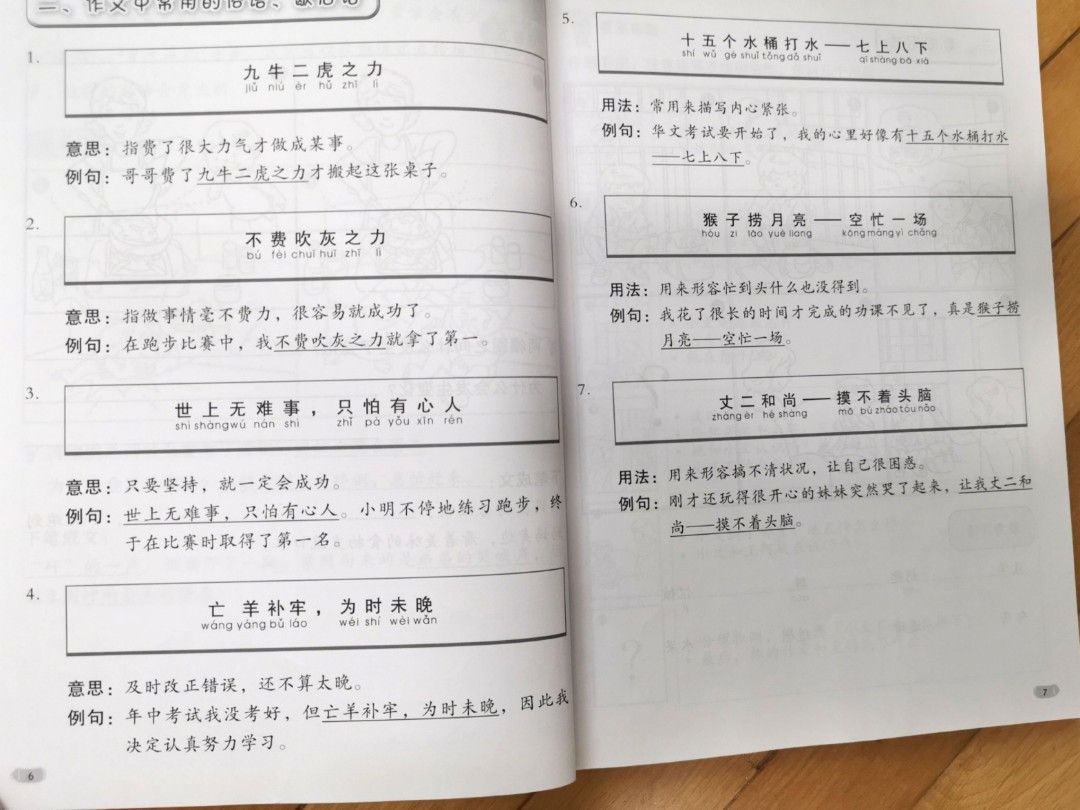 二、作文中常用的俗语、歇后语
1.
九牛二虎之力
jiǔ niú èr hǔ zhī lì
意思：指费了很大力气才做成某事。
例句：哥哥费了九牛二虎之力才搬起这张桌子。
2.
不费吹灰之力
bú fèi chuī huī zhī lì
意思：指做事情毫不费力，很容易就成功了。
例句：在跑步比赛中，我不费吹灰之力就拿了第一。
3.
世上无难事，只怕有心人
shì shàng wú nán shì zhǐ pà yǒu xīn rén
意思：只要坚持，就一定会成功。
例句：世上无难事，只怕有心人。小明不停地练习跑步，终
于在比赛时取得了第一名。
4.
亡羊补牢，为时未晚
wáng yáng bǔ láo wéi shí wèi wǎn
意思：及时改正错误，还不算太晚。
例句：年中考试我没考好，但亡羊补牢，为时未晚，因此我
决定认真努力学习。
6
5.
十五个水桶打水——七上八下
shí wǔ gè shuǐ tǒng dǎ shuǐ qī shàng bā xià
用法：常用来描写内心紧张。
例句：华文考试要开始了，我的心里好像有十五个水桶打水
——七上八下。
6.
猴子捞月亮——空忙一场
hóu zi lāo yuè liang kōng máng yì chǎng
用法：用来形容忙到头什么也没得到。
例句：我花了很长的时间才完成的功课不见了，真是猴子捞
月亮——空忙一场。
7.
丈二和尚——摸不着头脑
zhàng èr hé shang mō bù zháo tóu nǎo
用法：用来形容搞不清状况，让自己很困惑。
例句：刚才还玩得很开心的妹妹突然哭了起来，让我丈二和
尚——摸不着头脑。
7